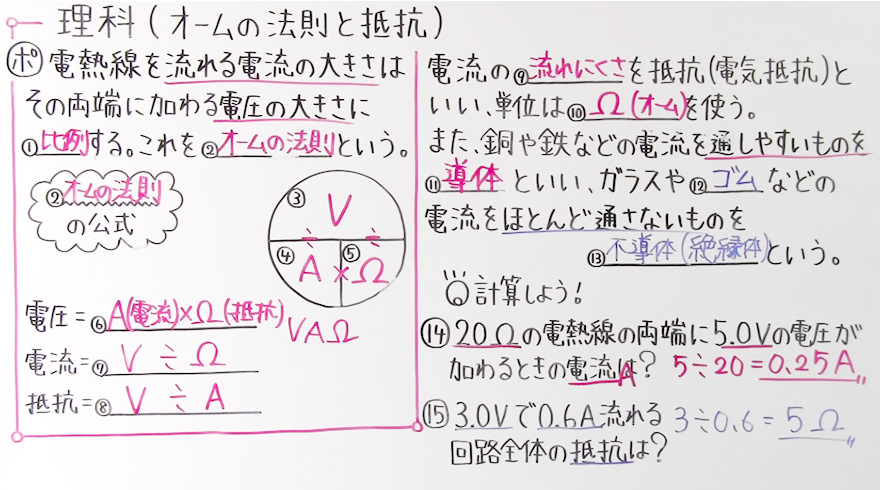 理科(オームの法則と抵抗)
ポ 電熱線を流れる電流の大きさは
その両端に加わる電圧の大きさに
①比例する。これを②オームの法則という。
②オームの法則
の公式
③ V
÷ ÷
④ A × ⑤ Ω
電圧=⑥A(電流)×Ω(抵抗)
VAΩ
電流=⑦V÷Ω
抵抗=⑧V÷A
電流の⑨流れにくさを抵抗(電気抵抗)と
いい、単位は⑩Ω(オーム)を使う。
また、銅や鉄などの電流を通しやすいものを
⑪導体といい、ガラスや⑫ゴムなどの
電流をほとんど通さないものを
⑬不導体(絶縁体)という。
計算しよう!
⑭20Ωの電熱線の両端に5.0Vの電圧が
加わるときの電流は? A 5÷20=0.25A
⑮3.0Vで0.6A流れる 3÷0.6=5Ω
回路全体の抵抗は?